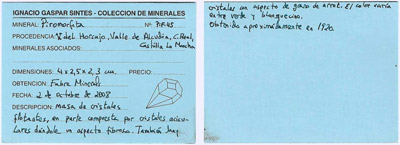 IGNACIO GASPAR SINTES - COLECCION DE MINERALES
MINERAL: Piromorfita Nº PIR-45
PROCEDENCIA: Mª del Horcajo, Valle de Alcudia, C. Real,
Castilla La Mancha
MINERALES ASOCIADOS:
DIMENSIONES: 4 x 2,5 x 2,3 cm.
OBTENCION: Fabre Minerals
FECHA: 2 de octubre de 2008
DESCRIPCION: masa de cristales
flotantes, en parte compuesta por cristales acicu-
lares dándole un aspecto fibroso. También hay
cristales con aspecto de grano de arroz. El color varía
entre verde y blanquecino.
Obtenida aproximadamente en 1920.